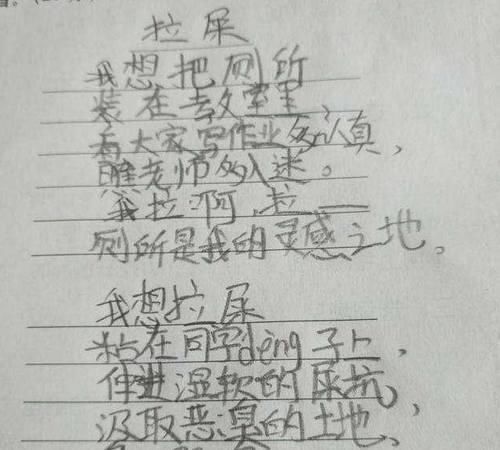 拉屎
我想把厕所
装在教室里
看大家写作业多认真，
瞧老师多入迷。
我拉啊，拉——
厕所是我的灵感之地。
我想拉屎
粘在同学dèng子上，
伸进湿软的屎坑，
汲取恶臭的土地、